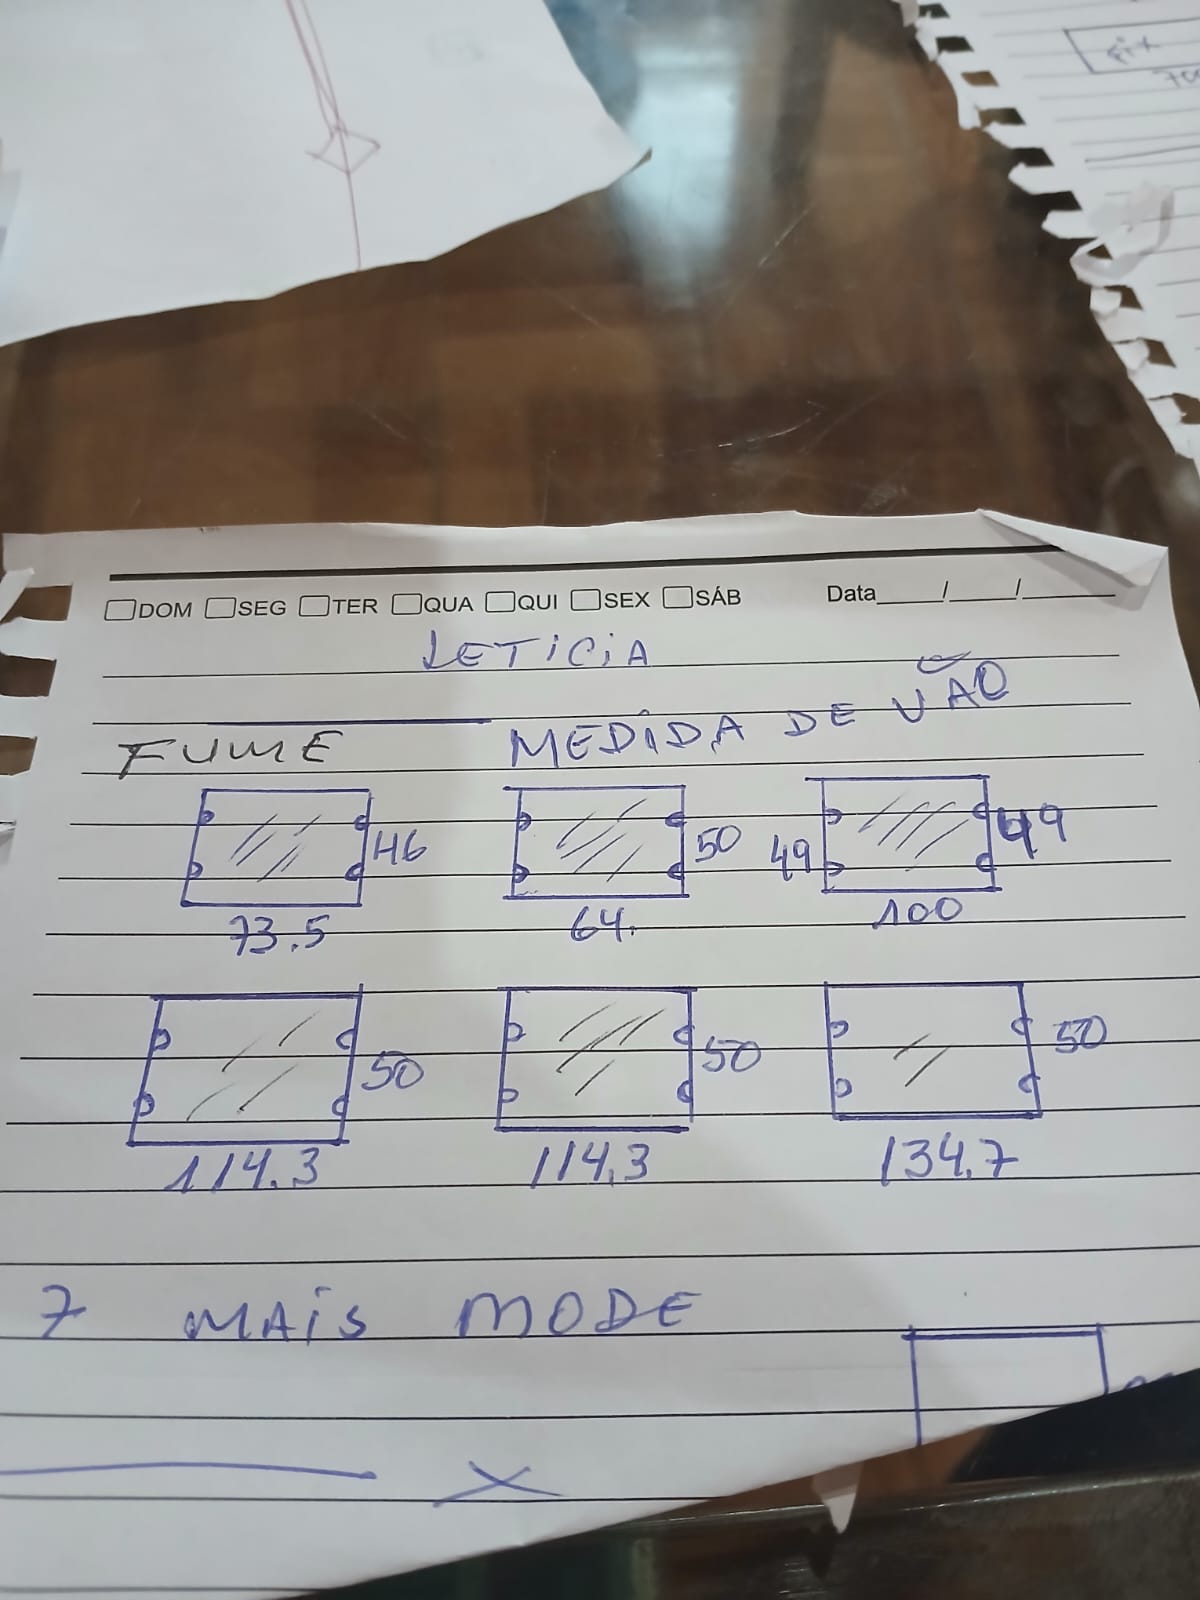 DOM SEG TER QUA QUI SEX SÁB Data / /
LETICIA
FUME MEDIDA DE VÃO
46 50 49 49
73.5 64. 100
50 50 50
114.3 114,3 134,7
7 MAIS MODE